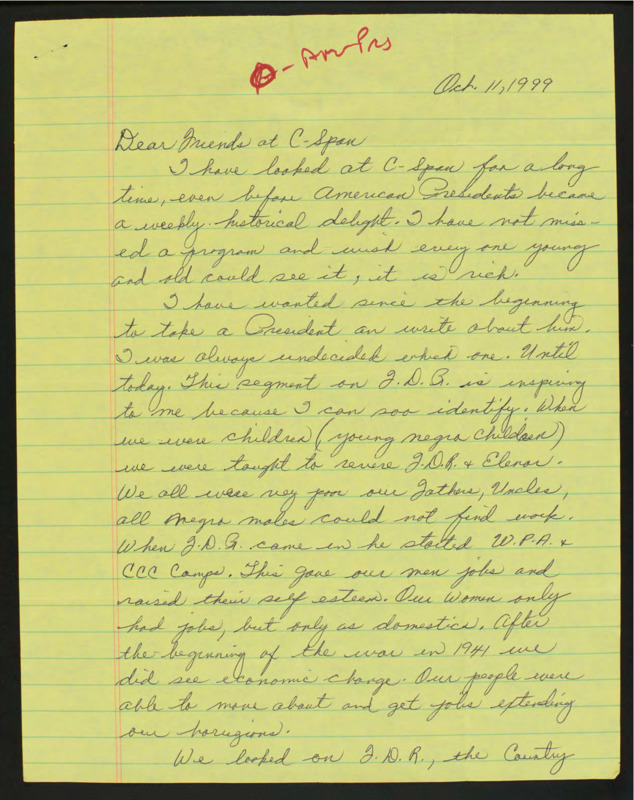 O - Am Prs
Oct. 11, 1999
Dear Friends at C-Span
I have looked at C-Span for a long
time, even before American Presidents became
a weekly historical delight. I have not miss-
ed a program and wish every one young
and old could see it, it is rich.
I have wanted since the beginning
to take a President an write about him.
I was always undecided which one. Until
today. This segment on F.D.R. is inspiring
to me because I can soo identify. When
we were children (young negro children)
we were taught to revere F.D.R. & Elenor.
We all were vey poor our Fathers, Uncles,
all Negro males could not find work.
When F.D.R. came in he started W.P.A. &
CCC Camps. This gave our men jobs and
raised their self esteem. Our Women only
had jobs, but only as domestics. After
the beginning of the war in 1941 we
did see economic change. Our people were
able to move about and get jobs extending
our horizions.
We looked on F.D.R., the Country